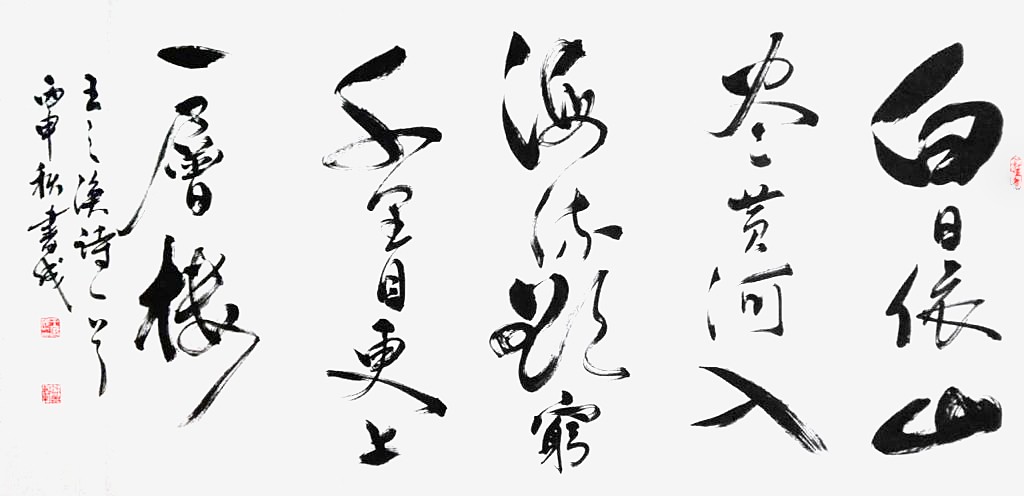 白日依山
尽黄河入
海流欲穷
千里目更上
一层楼
王之涣诗一首
丙申秋书成